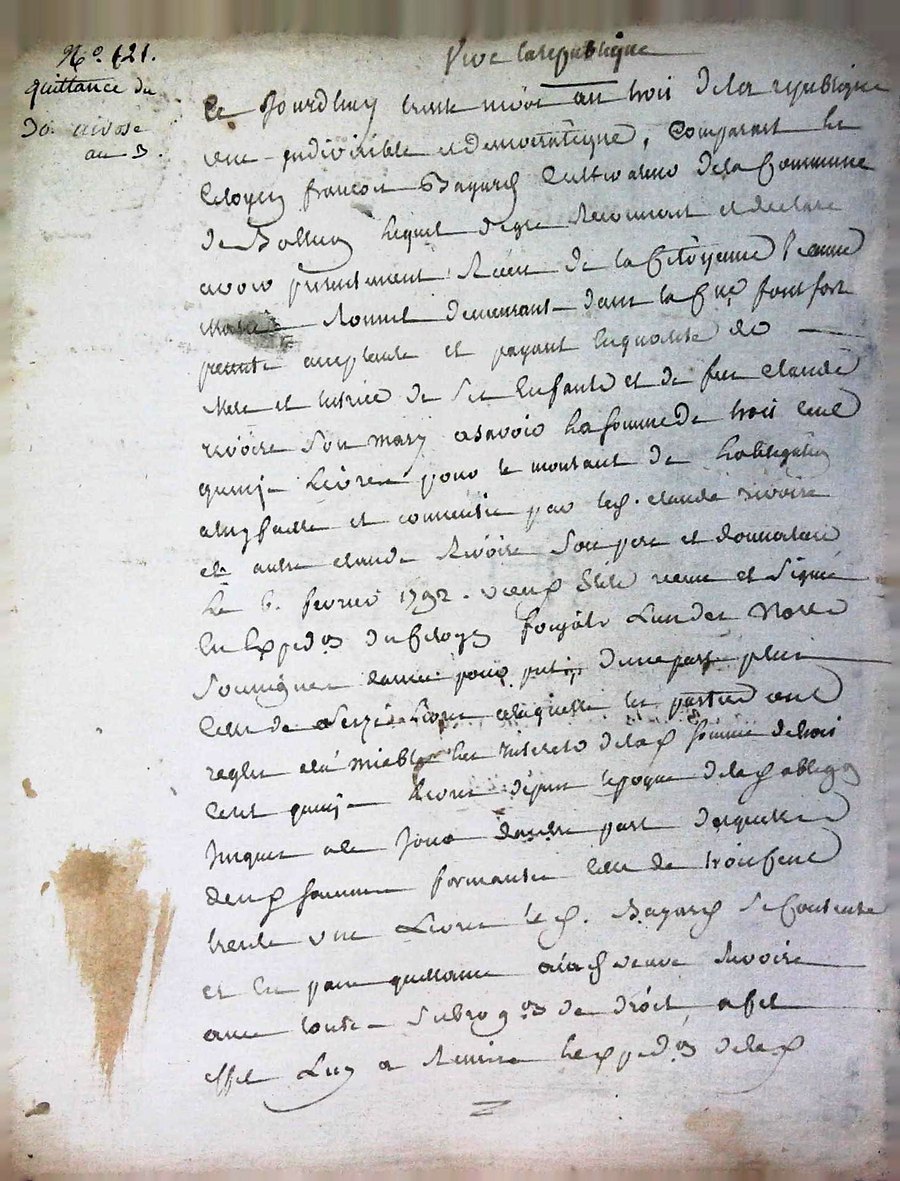 N.o 121.
quittance du
30 nivose
an 3.
Vive la republique
Ce Jourdhuy trente nivôse an trois de la republique
une indivisible et democratique, Comparant le
Citoyen françois Bayard Cultivateur de la Commune
de Bollieu lequel degré Reconnoit et declare
avoir presentement Receu de la Citoyenne
demeurant dans la C.ne fontfort
presente acceptante et payant en qualité de
Mere et tutrice de ses Enfants et de feu claude
revoire son mary a savoir la somme de trois cent
quinze Livres pour le montant de Lobligation
a luy faitte et consentie par led. claude revoire
et autre claude Revoire Son pere et donnataire
Le 6. fevrier 1792. vieux Stile receue et signée
En Expéd.on du Citoyen Lun des Notre
Soussignés d'une part plus
Celle de Seize Livres a laquelle les parties ont
regler a la miable les Interets de lad somme de trois
Cent quinze Livres depuis lepoque de lad obligaon
Jusques a ce Jour dautre part desquelles
deux sommes formantes celle de trois Cent
trente une Livres led. Bayard Se Contente
et En passe quittance a lad veuve Revoire
avec toutes Subrog.ons de droit, a Cet
effet Luy a Remise Lexpéd.on de lad